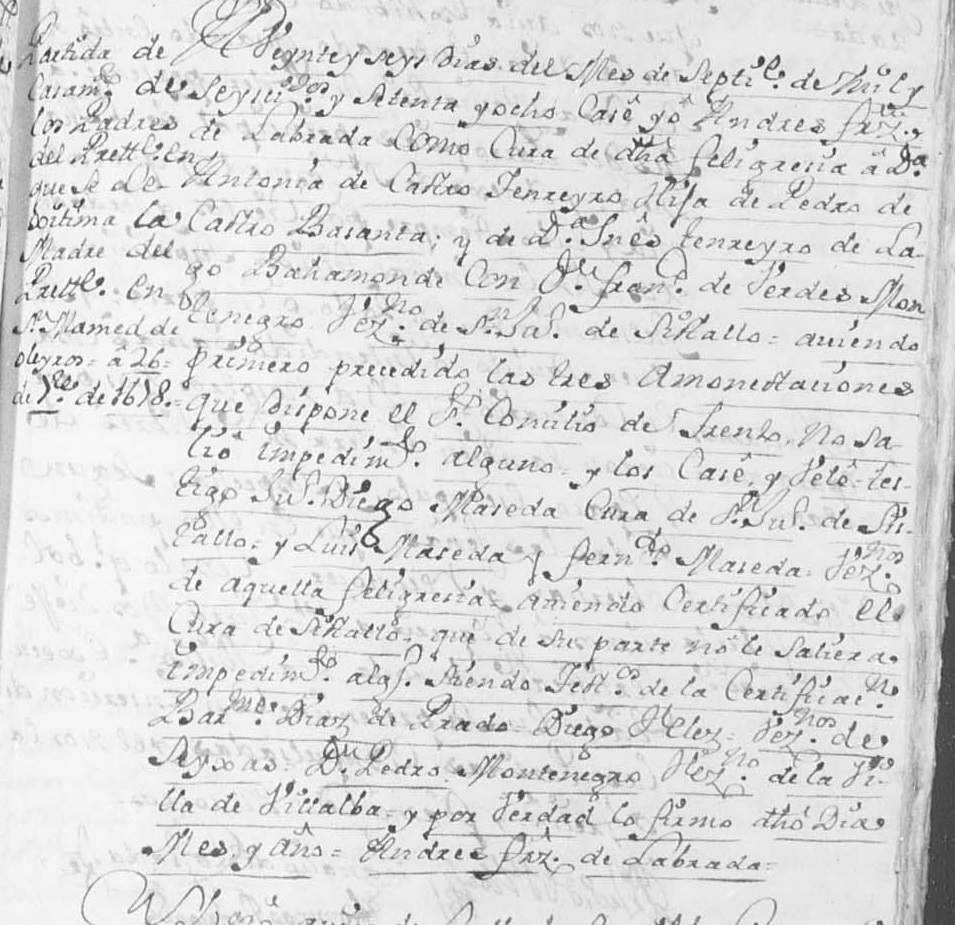 Partida de
Casamto. de
los Padres
del Prettte. en
que se le
Lexitima la
Madre del
Prette. en
Sn. Mamed de
oleyros = a 26 =
de 7re. de 1678 =
A Veynte y seys Dias del Mes de Septire. de Mil y
Seysiedos y Setenta y ocho Casê yô Andres frz. 
de Labrada Como Cura de dthâ feligresia â Da.
Antonia de Castro Tenreyro Hija de Pedro de
Castro Basanta; y de Da. Ynês tenreyro de La-
go Bahamonde Con Dn. franco. de Verdes Mon
tenegro Vezno. de Sn. Jun. de Sistallo = aviendo
primero precedido las tres Amonestaciones
que dispone el Sto. Concilio de Trento, No sa-
liô impedimto. alguno = y los Casê, y Velê = tes-
tigo Diego Maseda Cura de Sn. Jun. de Sis-
tallo = y Luis Maseda y ferndo. Maseda = Veznos.
de aquella feligresia = aviendo Certificado el
Cura de Sistallo, que de su parte no le saliera
impedimto. algo. Siendo Testos. de la Certificacn.
Barme. Diaz de Prado = Diego = Veznos. de
Dn. Pedro Montenegro Vezno. de la Vi-
lla de Villalba = y por Verdad lo firmo dthô Dia
Mes y año = Andres frz. de Labrada =